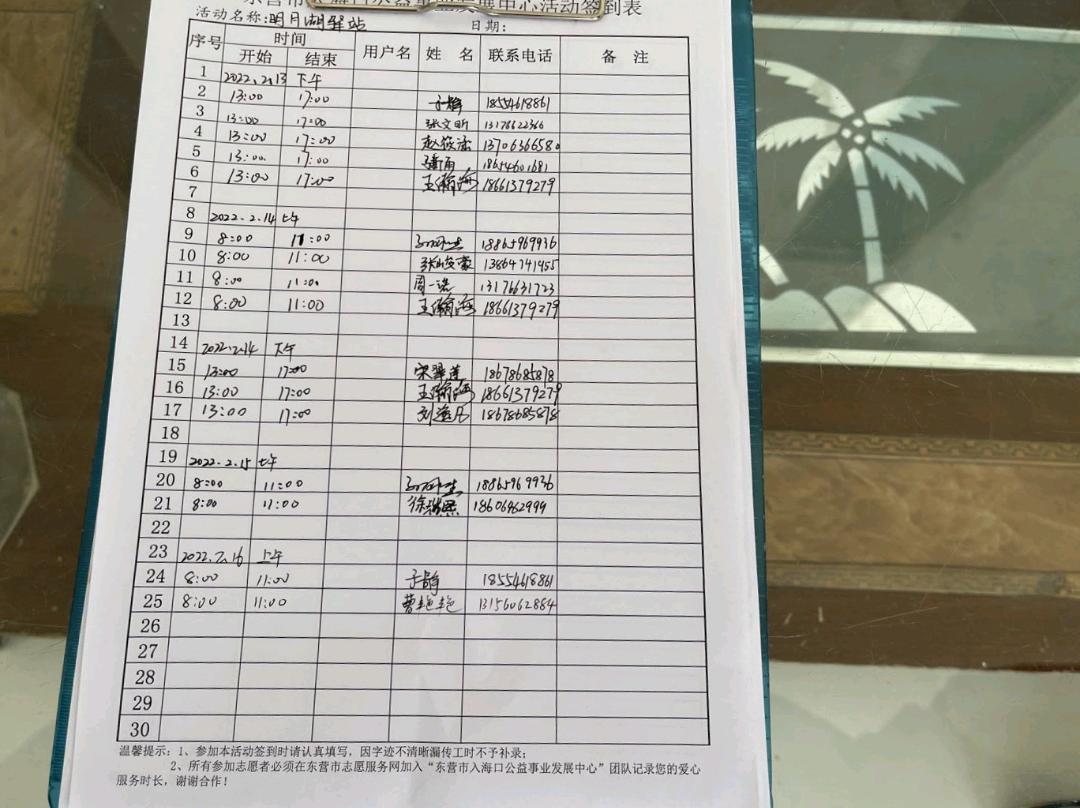 展中心活动签到表
活动名称:明月湖驿站 日期:
序号 时间 用户名 姓 名 联系电话 备 注
开始 结束
1 2022.2.13 下午
2 13:00 17:00 于静 18554618861
3 13:00 17:00 张文昕 13176622366
4 13:00 17:00 赵 1370636658
5 13:00 17:00 18654601681
6 13:00 17:00 王瀚海 18661379279
7
8 2022.2.14 上午
9 8:00 11:00 18865969936
10 8:00 11:00 张峻豪 13864741455
11 8:00 11:00 周一诺 13176631723
12 8:00 11:00 王瀚海 18661379279
13
14 2022.2.14 下午
15 13:00 17:00 宋翠莲 18678685878
16 13:00 17:00 王瀚海 18661379279
17 13:00 17:00 刘 18678685878
18
19 2022.2.15 上午
20 8:00 11:00 18865969936
21 8:00 11:00 徐 18606462999
22
23 2022.2.16 上午
24 8:00 11:00 于静 18554618861
25 8:00 11:00 曹艳艳 13156062884
26
27
28
29
30
温馨提示：1、参加本活动签到时请认真填写，因字迹不清晰漏传工时不予补录；
2、所有参加志愿者必须在东营市志愿服务网加入“东营市入海口公益事业发展中心”团队记录您的爱心
服务时长，谢谢合作！